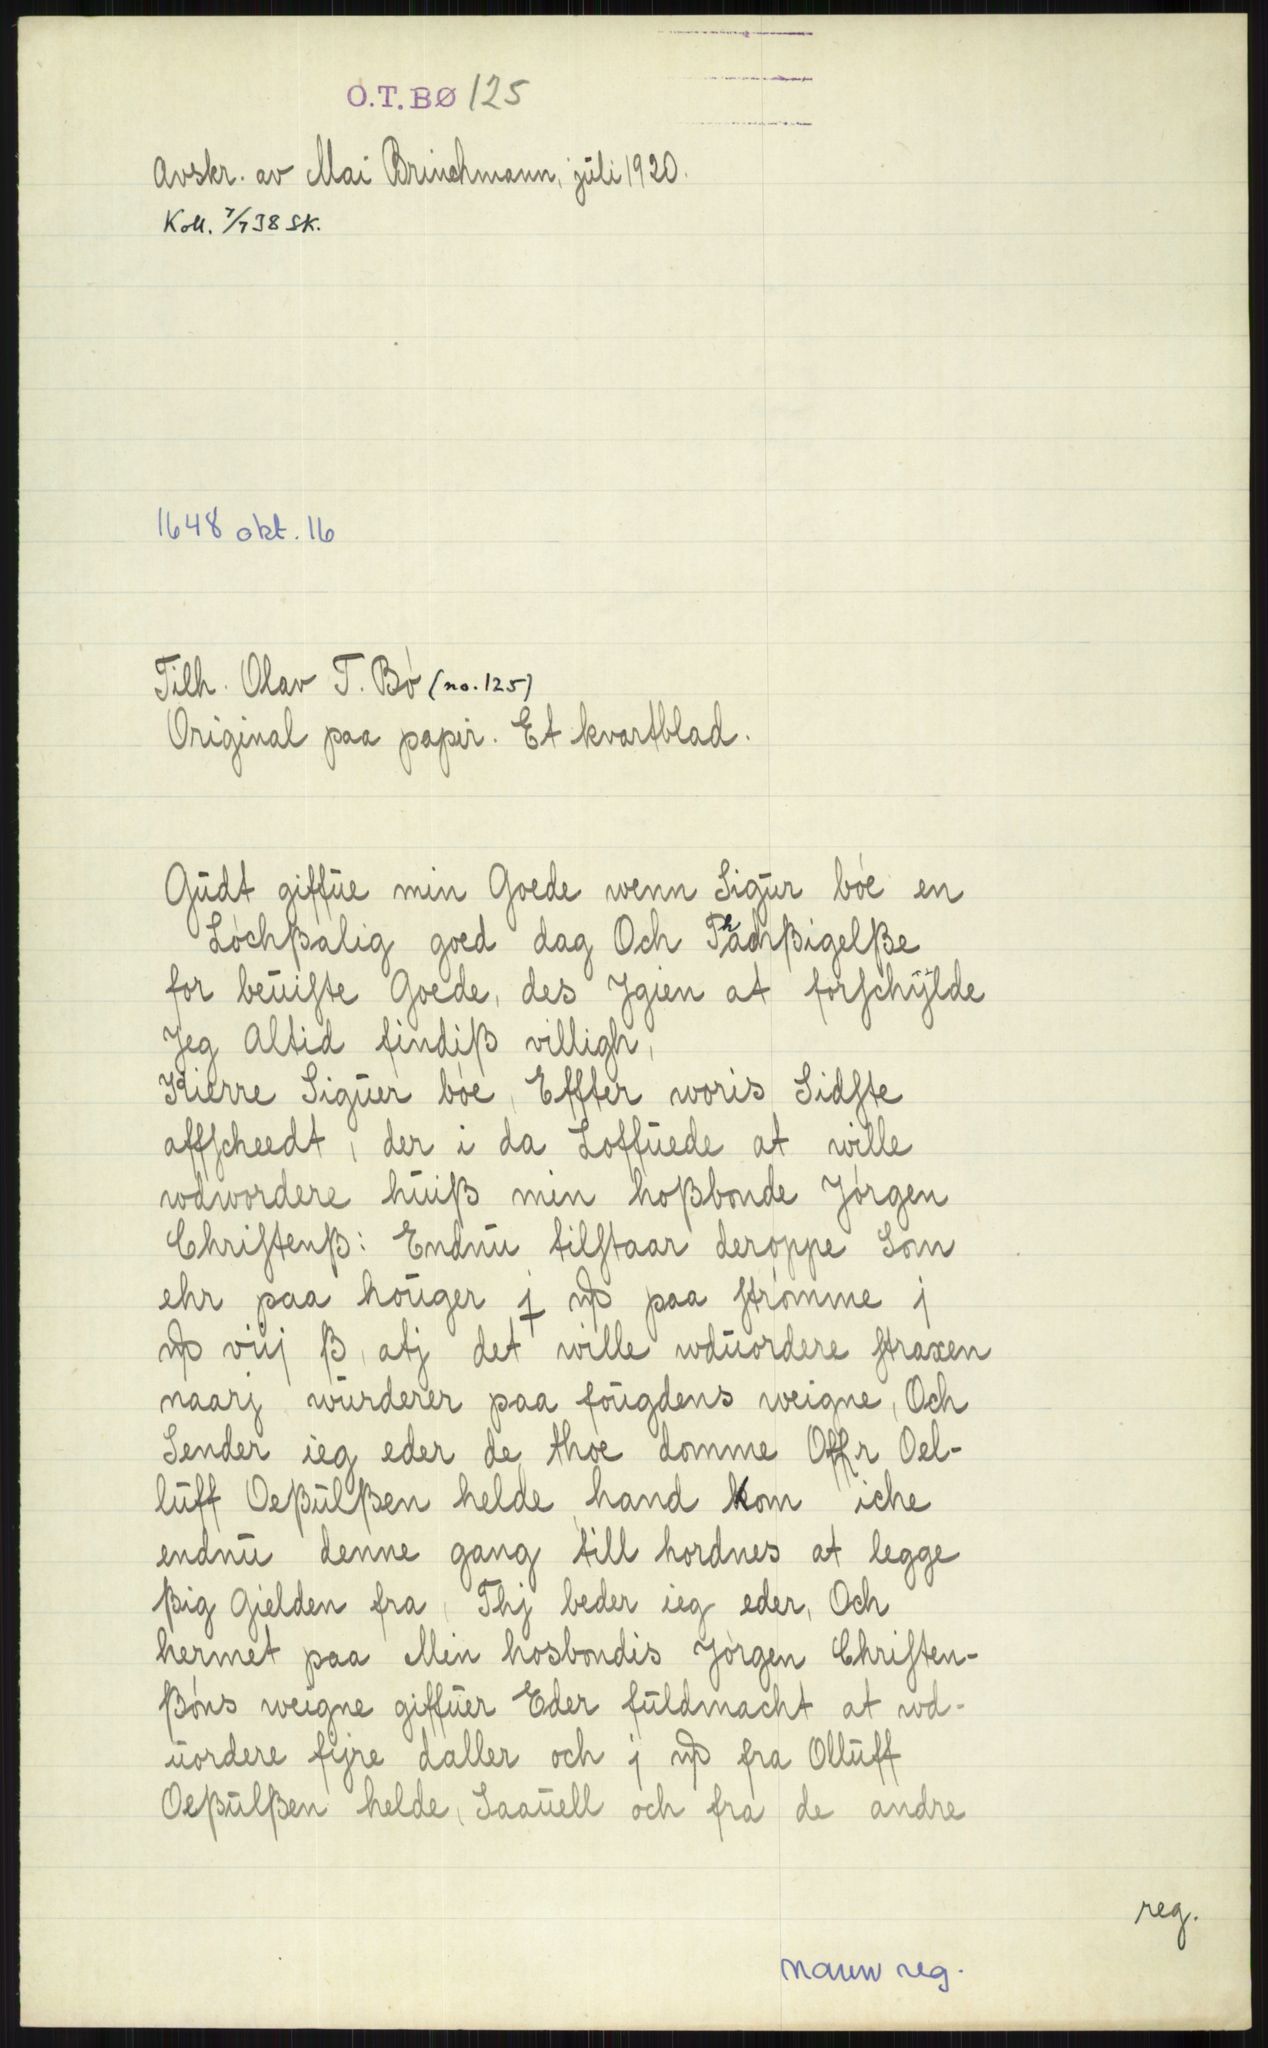 O.T.BØ 125
Avskr. av Mai Brinchmann, juli 1920.
Koll. 7/7 38 SK.
1648 okt. 16
Tilh. Olav T. Bø (no. 125)
Original paa papir. Et kvartblad.
Gŭdt giffŭe min Goede wenn Sigŭr bóe en
Lóchßalig goed dag Och Thachßigelße
for beŭiste Goede, des Ygien at forschÿlde
Jeg Altid findiß villigh,
Kierre Sigŭer bóe, Effter woris Sidste
affscheedt, der i da Loffŭede at wille
wdwordere hŭiß min hoßbonde Jórgen
Christenß: Endnŭ tilstaar deroppe Som
ehr paa hoŭger j paa strómme j
viij ß, atj det wille wdŭordere straxen
naarj wŭrderer paa foŭgdens weigne, Och
Sender ieg eder de thoe domme Offr Oel-
lŭff Oeßŭlßen helde, hand kom iche
endnŭ denne gang till hordnes at legge
ßig Gielden fra, Thj beder ieg eder, Och
hermet paa Min hosbondis Jórgen Christen-
ßóns weigne giffŭer Eder fŭldmacht at wd-
ŭordere fijre daller och j fra Ollŭff
Oeßŭlßen helde, Saaŭell och fra de andre
reg.
navn reg.